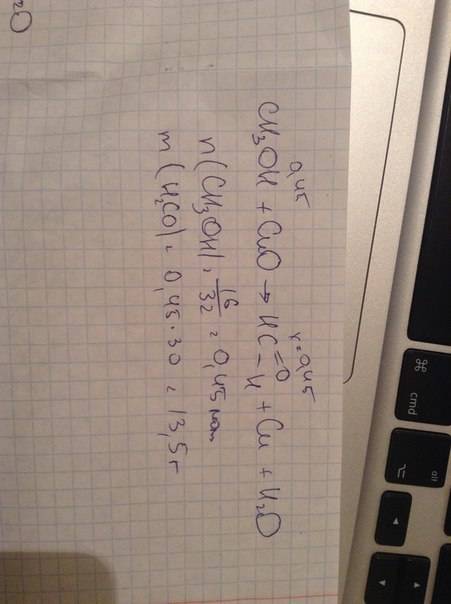 0,45
x = 0,45
CH₃OH + CuO → HC=O–H + Cu + H₂O
n(CH₃OH) = 16/32 = 0,45 моль
m(H₂CO) = 0,45·30 = 13,5 г
₂O
⌘
cmd
alt
⌥